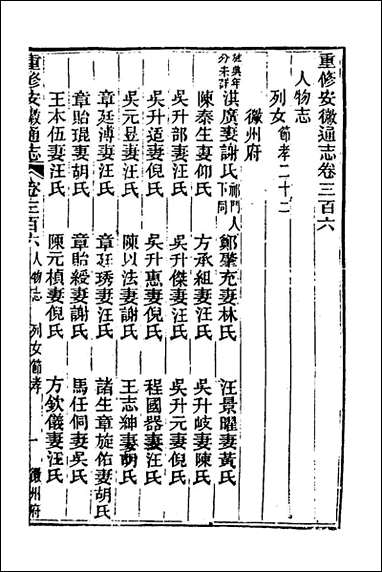 重修安徽通志卷三百六
人物志
列女節孝二十二
徽州府
淇廣妻謝氏祁門人下同 鄭聚充妻林氏 汪景曜妻黃氏
陳泰生妻仰氏 方承組妻汪氏 吳升岐妻陳氏
吳升郜妻汪氏 吳升傑妻汪氏 吳升元妻倪氏
吳升适妻倪氏 吳升惠妻倪氏 程國器妻汪氏
吳元昱妻汪氏 陳以法妻謝氏 王志紳妻胡氏
章廷溥妻汪氏 章廷琇妻汪氏 諸生章旋佑妻胡氏
章貽琨妻胡氏 章貽綬妻謝氏 馬任伺妻吳氏
王本伍妻汪氏 陳元楨妻倪氏 方欽儀妻汪氏
重修安徽通志 卷三百六 人物志 列女節孝 一 徽州府